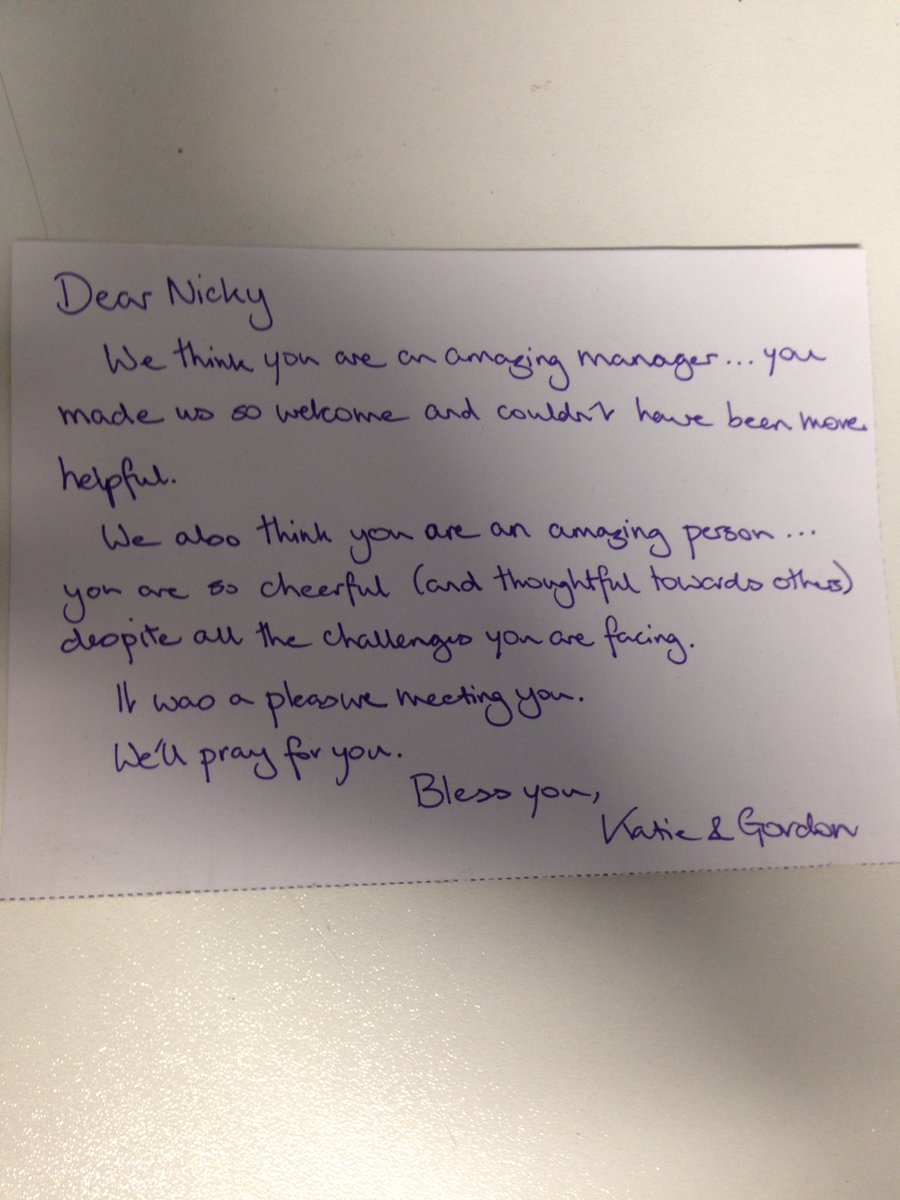 Dear Nicky
We think you are an amazing manager... you
made us so welcome and couldn't have been more
helpful.
We also think you are an amazing person...
you are so cheerful (and thoughtful towards others)
despite all the challenges you are facing.
It was a pleasure meeting you.
We'll pray for you.
Bless you,
Katie & Gordon